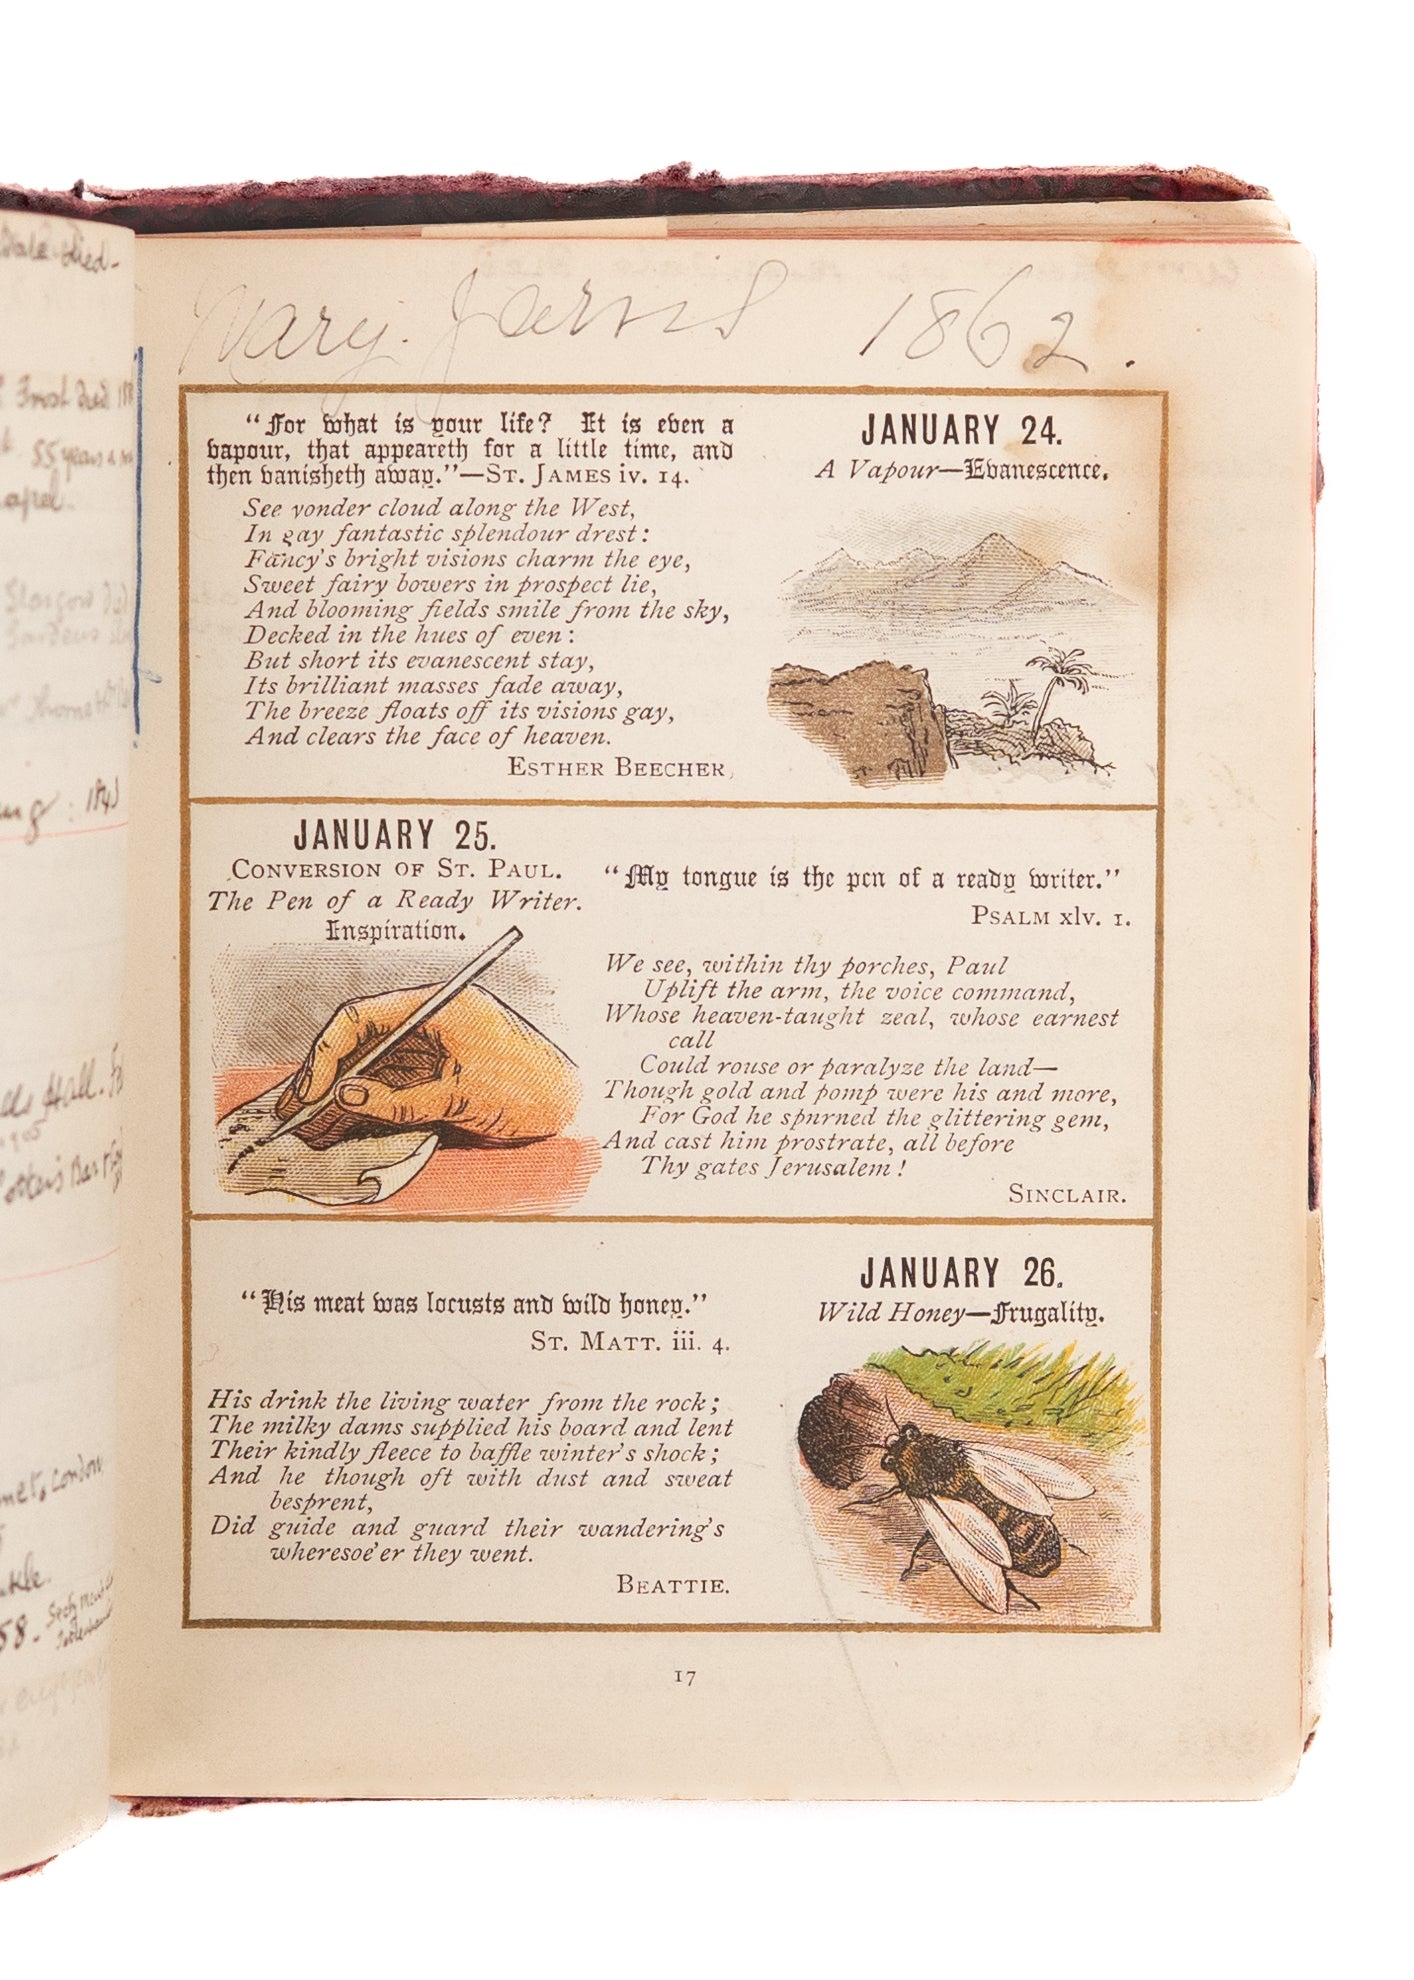 Dale died -
Frost died 18
55 years &
apel.
Glasgow Di
Gardens
ung : 1843
lls Hall.
1905
otters Bar
met, London
kle.
58 -
Mary. Jarvis 1862.
"For what is your life? It is even a
vapour, that appeareth for a little time, and
then vanisheth away."—ST. JAMES iv. 14.
See yonder cloud along the West,
In gay fantastic splendour drest:
Fancy's bright visions charm the eye,
Sweet fairy bowers in prospect lie,
And blooming fields smile from the sky,
Decked in the hues of even:
But short its evanescent stay,
Its brilliant masses fade away,
The breeze floats off its visions gay,
And clears the face of heaven.
ESTHER BEECHER.
JANUARY 24.
A Vapour—Evanescence.
JANUARY 25.
CONVERSION OF ST. PAUL.
The Pen of a Ready Writer.
Inspiration.
"My tongue is the pen of a ready writer."
PSALM xlv. 1.
We see, within thy porches, Paul
Uplift the arm, the voice command,
Whose heaven-taught zeal, whose earnest
call
Could rouse or paralyze the land—
Though gold and pomp were his and more,
For God he spurned the glittering gem,
And cast him prostrate, all before
Thy gates Jerusalem!
SINCLAIR.
"His meat was locusts and wild honey."
ST. MATT. iii. 4.
His drink the living water from the rock;
The milky dams supplied his board and lent
Their kindly fleece to baffle winter's shock;
And he though oft with dust and sweat
besprent,
Did guide and guard their wandering's
wheresoe'er they went.
BEATTIE.
JANUARY 26.
Wild Honey—Frugality.
17